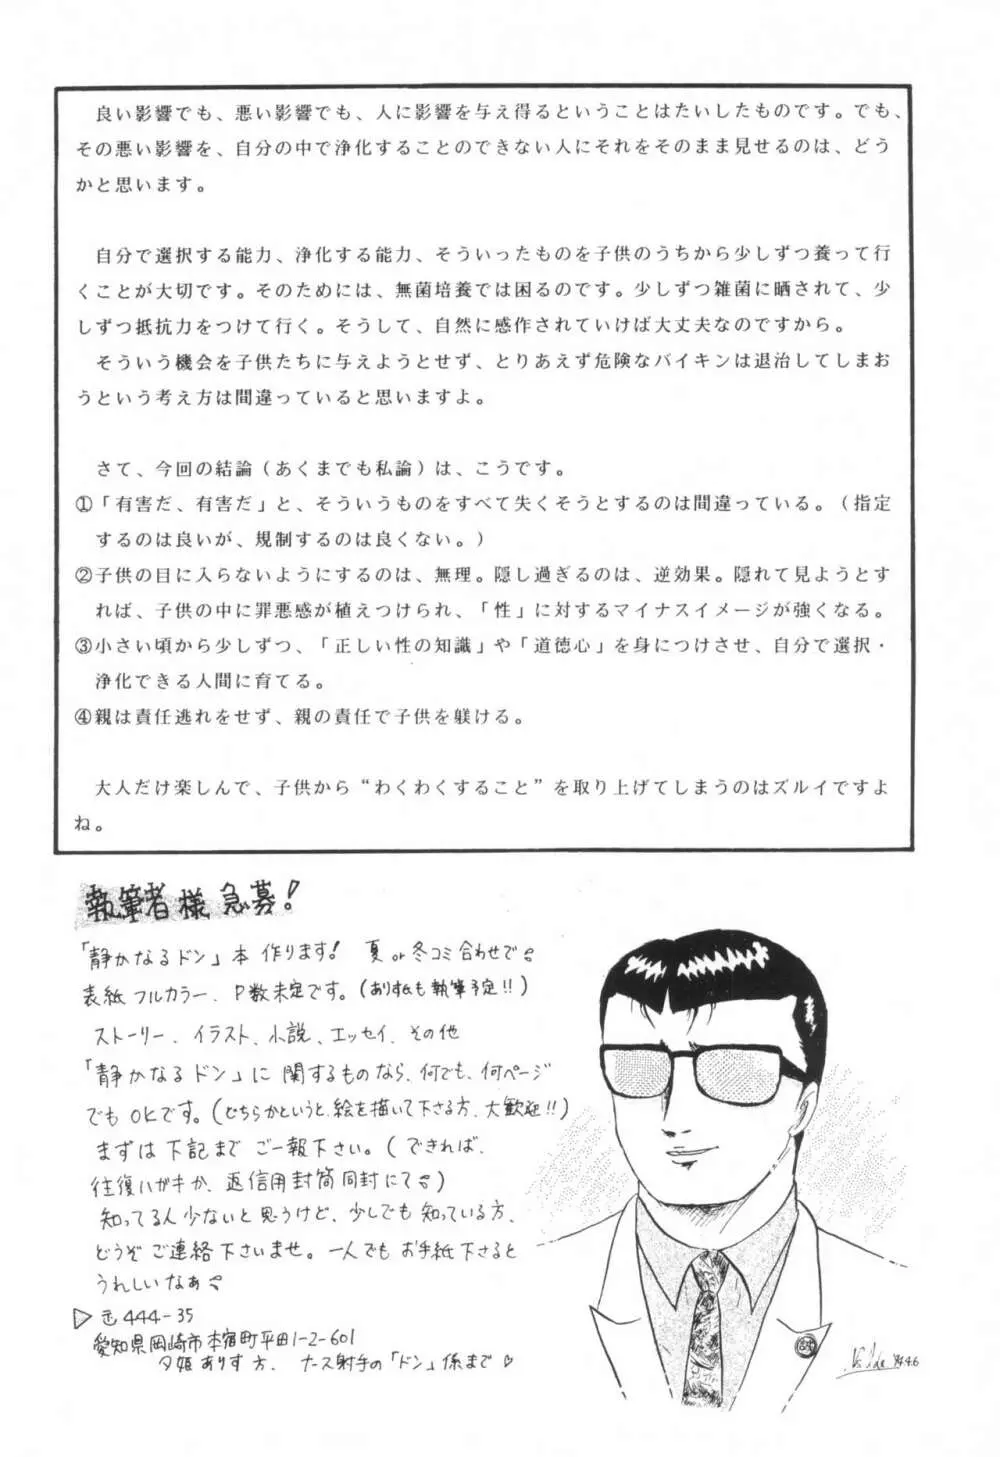 良い影響でも、悪い影響でも、人に影響を与え得るということはたいしたものです。でも、
その悪い影響を、自分の中で浄化することのできない人にそれをそのまま見せるのは、どう
かと思います。
自分で選択する能力、浄化する能力、そういったものを子供のうちから少しずつ養って行
くことが大切です。そのためには、無菌培養では困るのです。少しずつ雑菌に晒されて、少
しずつ抵抗力をつけて行く。そうして、自然に感作されていけば大丈夫なのですから。
そういう機会を子供たちに与えようとせず、とりあえず危険なバイキンは退治してしまお
うという考え方は間違っていると思いますよ。
さて、今回の結論（あくまでも私論）は、こうです。
①「有害だ、有害だ」と、そういうものをすべて失くそうとするのは間違っている。（指定
するのは良いが、規制するのは良くない。）
②子供の目に入らないようにするのは、無理。隠し過ぎるのは、逆効果。隠れて見ようとす
れば、子供の中に罪悪感が植えつけられ、「性」に対するマイナスイメージが強くなる。
③小さい頃から少しずつ、「正しい性の知識」や「道徳心」を身につけさせ、自分で選択・
浄化できる人間に育てる。
④親は責任逃れをせず、親の責任で子供を躾ける。
大人だけ楽しんで、子供から“わくわくすること”を取り上げてしまうのはズルイですよ
ね。
執筆者様 急募！
「静かなるドン」本 作ります！ 夏or冬コミ合わせで
表紙フルカラー、P数未定です。（ありすも執筆予定!!）
ストーリー、イラスト、小説、エッセイ、その他
「静かなるドン」に関するものなら、何でも、何ページ
でもOKです。（どちらかというと、絵を描いて下さる方、大歓迎!!）
まずは下記までご一報下さい。（できれば、
往復ハガキか、返信用封筒同封にて）
知ってる人少ないと思うけど、少しでも知っている方、
どうぞご連絡下さいませ。一人でもお手紙下さると
うれしいなぁ
▷〒444-35
愛知県岡崎市本宿町平田1-2-601
夕姫ありす方、ナース射手の「ドン」係まで♡